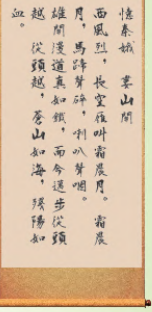 憶秦娥　婁山關
西風烈，長空雁叫霜晨月。霜晨
月，馬蹄聲碎，喇叭聲咽。
雄關漫道真如鐵，而今邁步從頭
越。從頭越，蒼山如海，殘陽如
血。